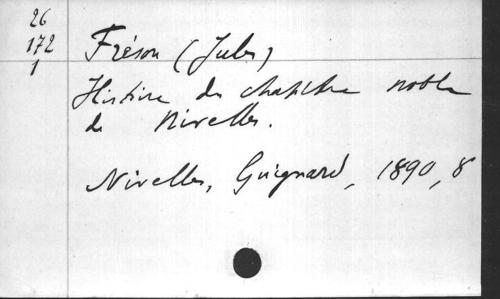 26
172
1
Fréson (Jules)
Histoire du chapitre noble
de Nivelles.
Nivelles, Guignard, 1890, 8